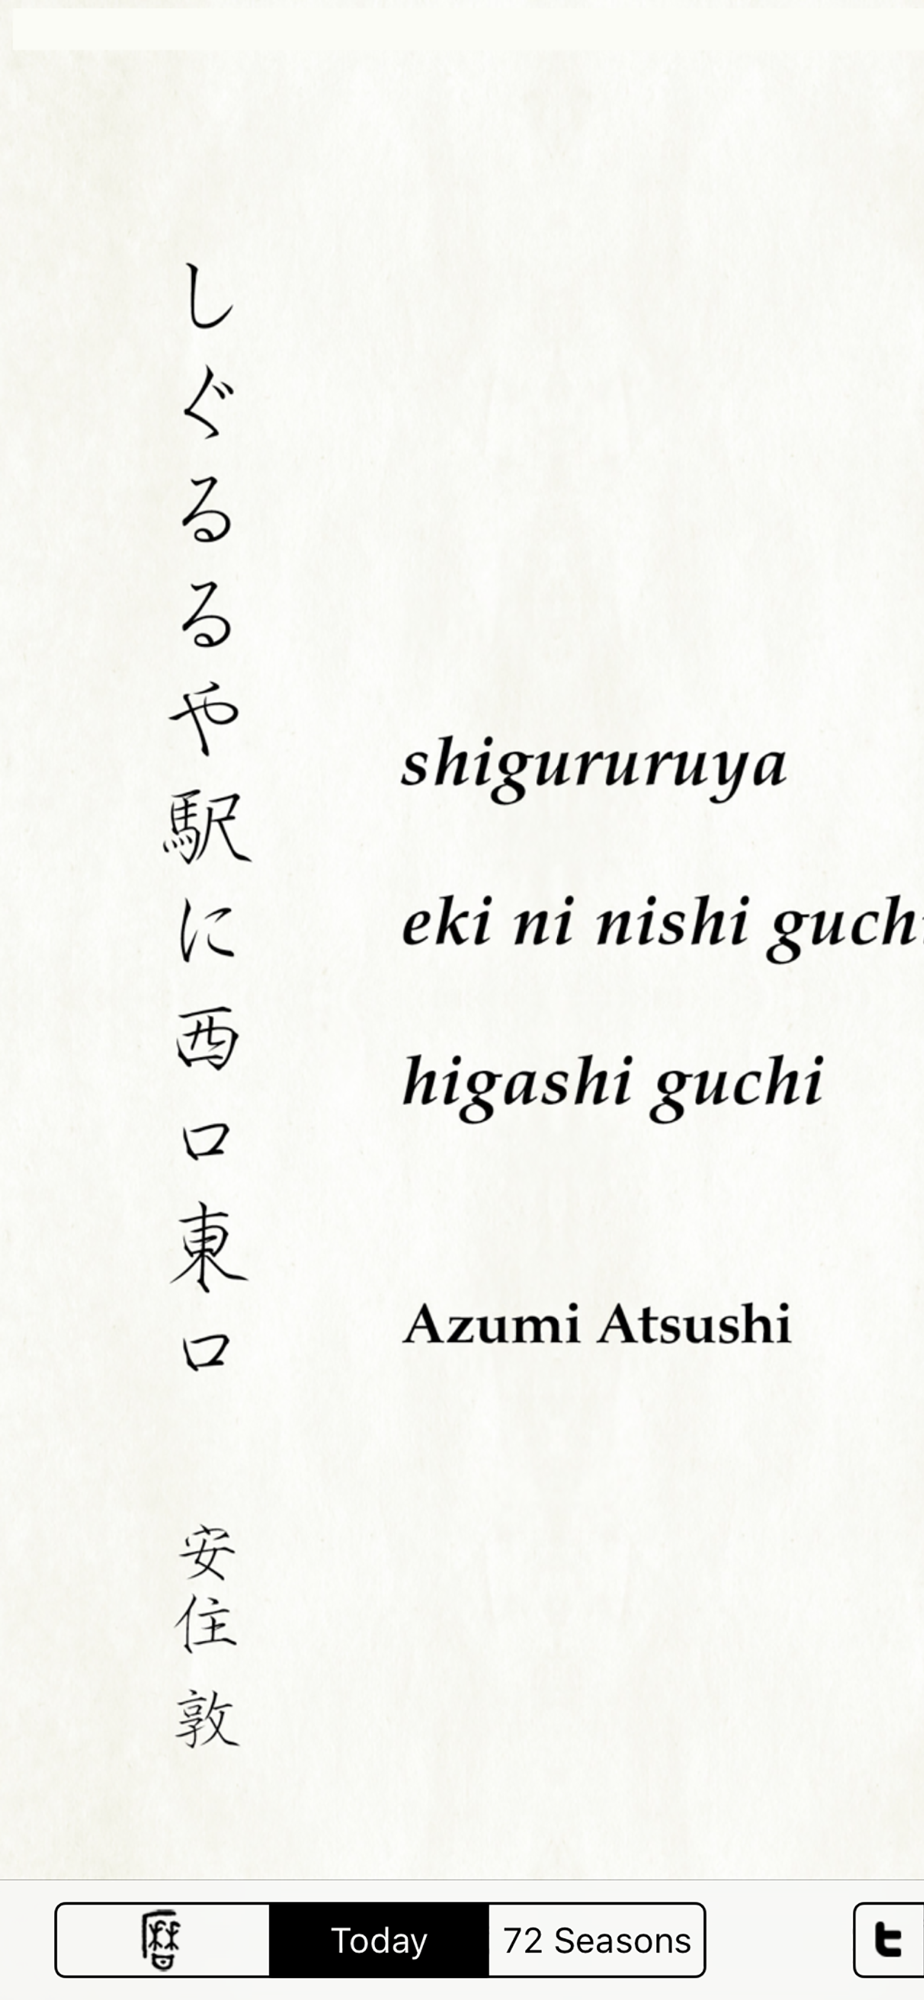 しぐるるや駅に西口東口
安住 敦
shigururuya
eki ni nishi guchi
higashi guchi
Azumi Atsushi
暦
Today
72 Seasons
t